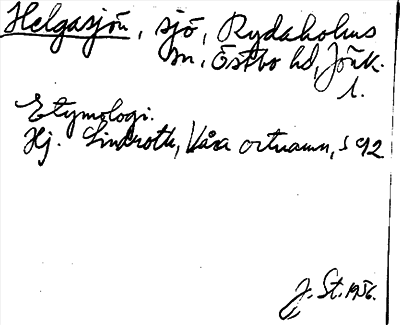 Helgasjön, sjö, Rydaholms
sn, Östbo hd, Jönk.
l.
Etymologi.
Hj. Lindroth, Våra ortnamn, s 92
J. St. 1956.